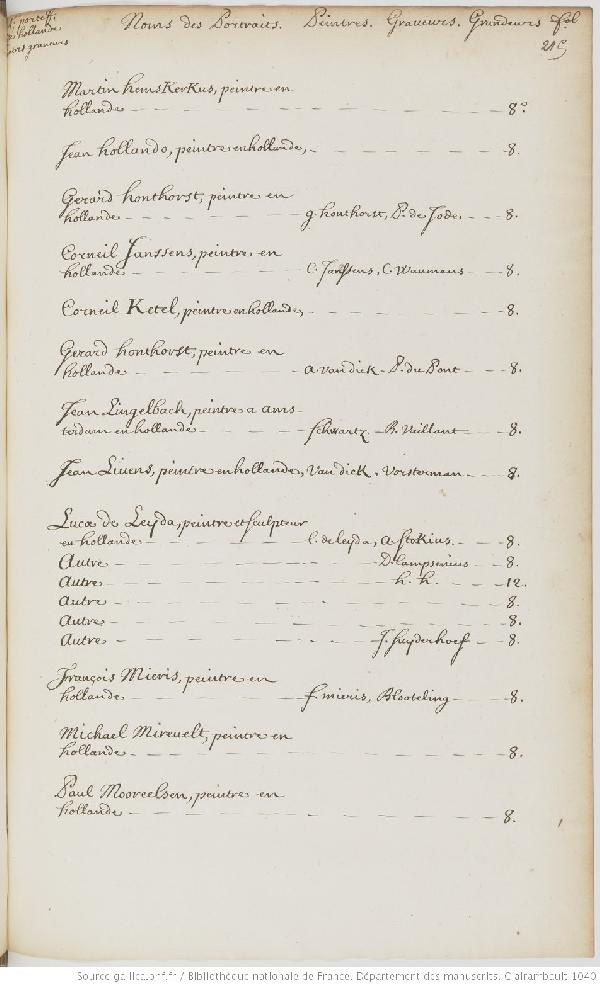 portef.
hollande
graveurs
Noms des Portraits. Peintres. Graveurs. Grandeurs fol
215
Martin hemsKerKus, peintre en
hollande 8.º
Jean hollando, peintre en hollande, 8.
Gerard honthorst, peintre en
hollande g. honthorst, P. de Jode. 8.
Corneil Janssens, peintre en
hollande C. Janssens, C. Waumans 8.
Corneil Ketel, peintre en hollande, 8.
Gerard honthorst, peintre en
hollande a. van dick P. du Pont 8.
Jean Lingelbach, peintre a ams-
terdam en hollande schwartz B. Vaillant 8.
Jean Livens, peintre en hollande, van dick. vorsterman 8.
Lucas de Leyda, peintre et sculpteur
en hollande l. de leyda, a stokius. 8.
Autre D. lampsonius 8.
Autre h. h. 12.
Autre 8.
Autre 8.
Autre J. suyderhoef 8.
François Mieris, peintre en
hollande f. mieris, Blooteling 8.
Michael Mirevelt, peintre en
hollande 8.
Paul Mooreelsen, peintre en
hollande 8.
Source gallica.bnf.fr / Bibliothèque nationale de France. Département des manuscrits. Clairambault 1040